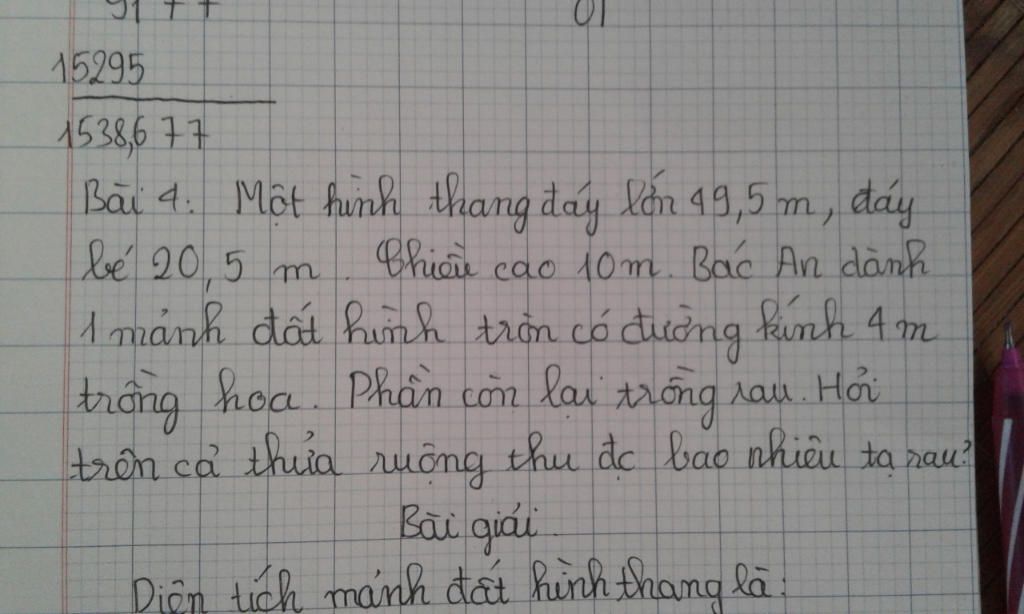 15295
1538,677
Bài 4: Một hình thang đáy lớn 49,5 m, đáy
bé 20,5 m. Chiều cao 10m. Bác An dành
1 mảnh đất hình tròn có đường kính 4 m
trồng hoa. Phần còn lại trồng rau. Hỏi
trên cả thửa ruộng thu đc bao nhiêu tạ rau?
Bài giải
Diện tích mảnh đất hình thang là: